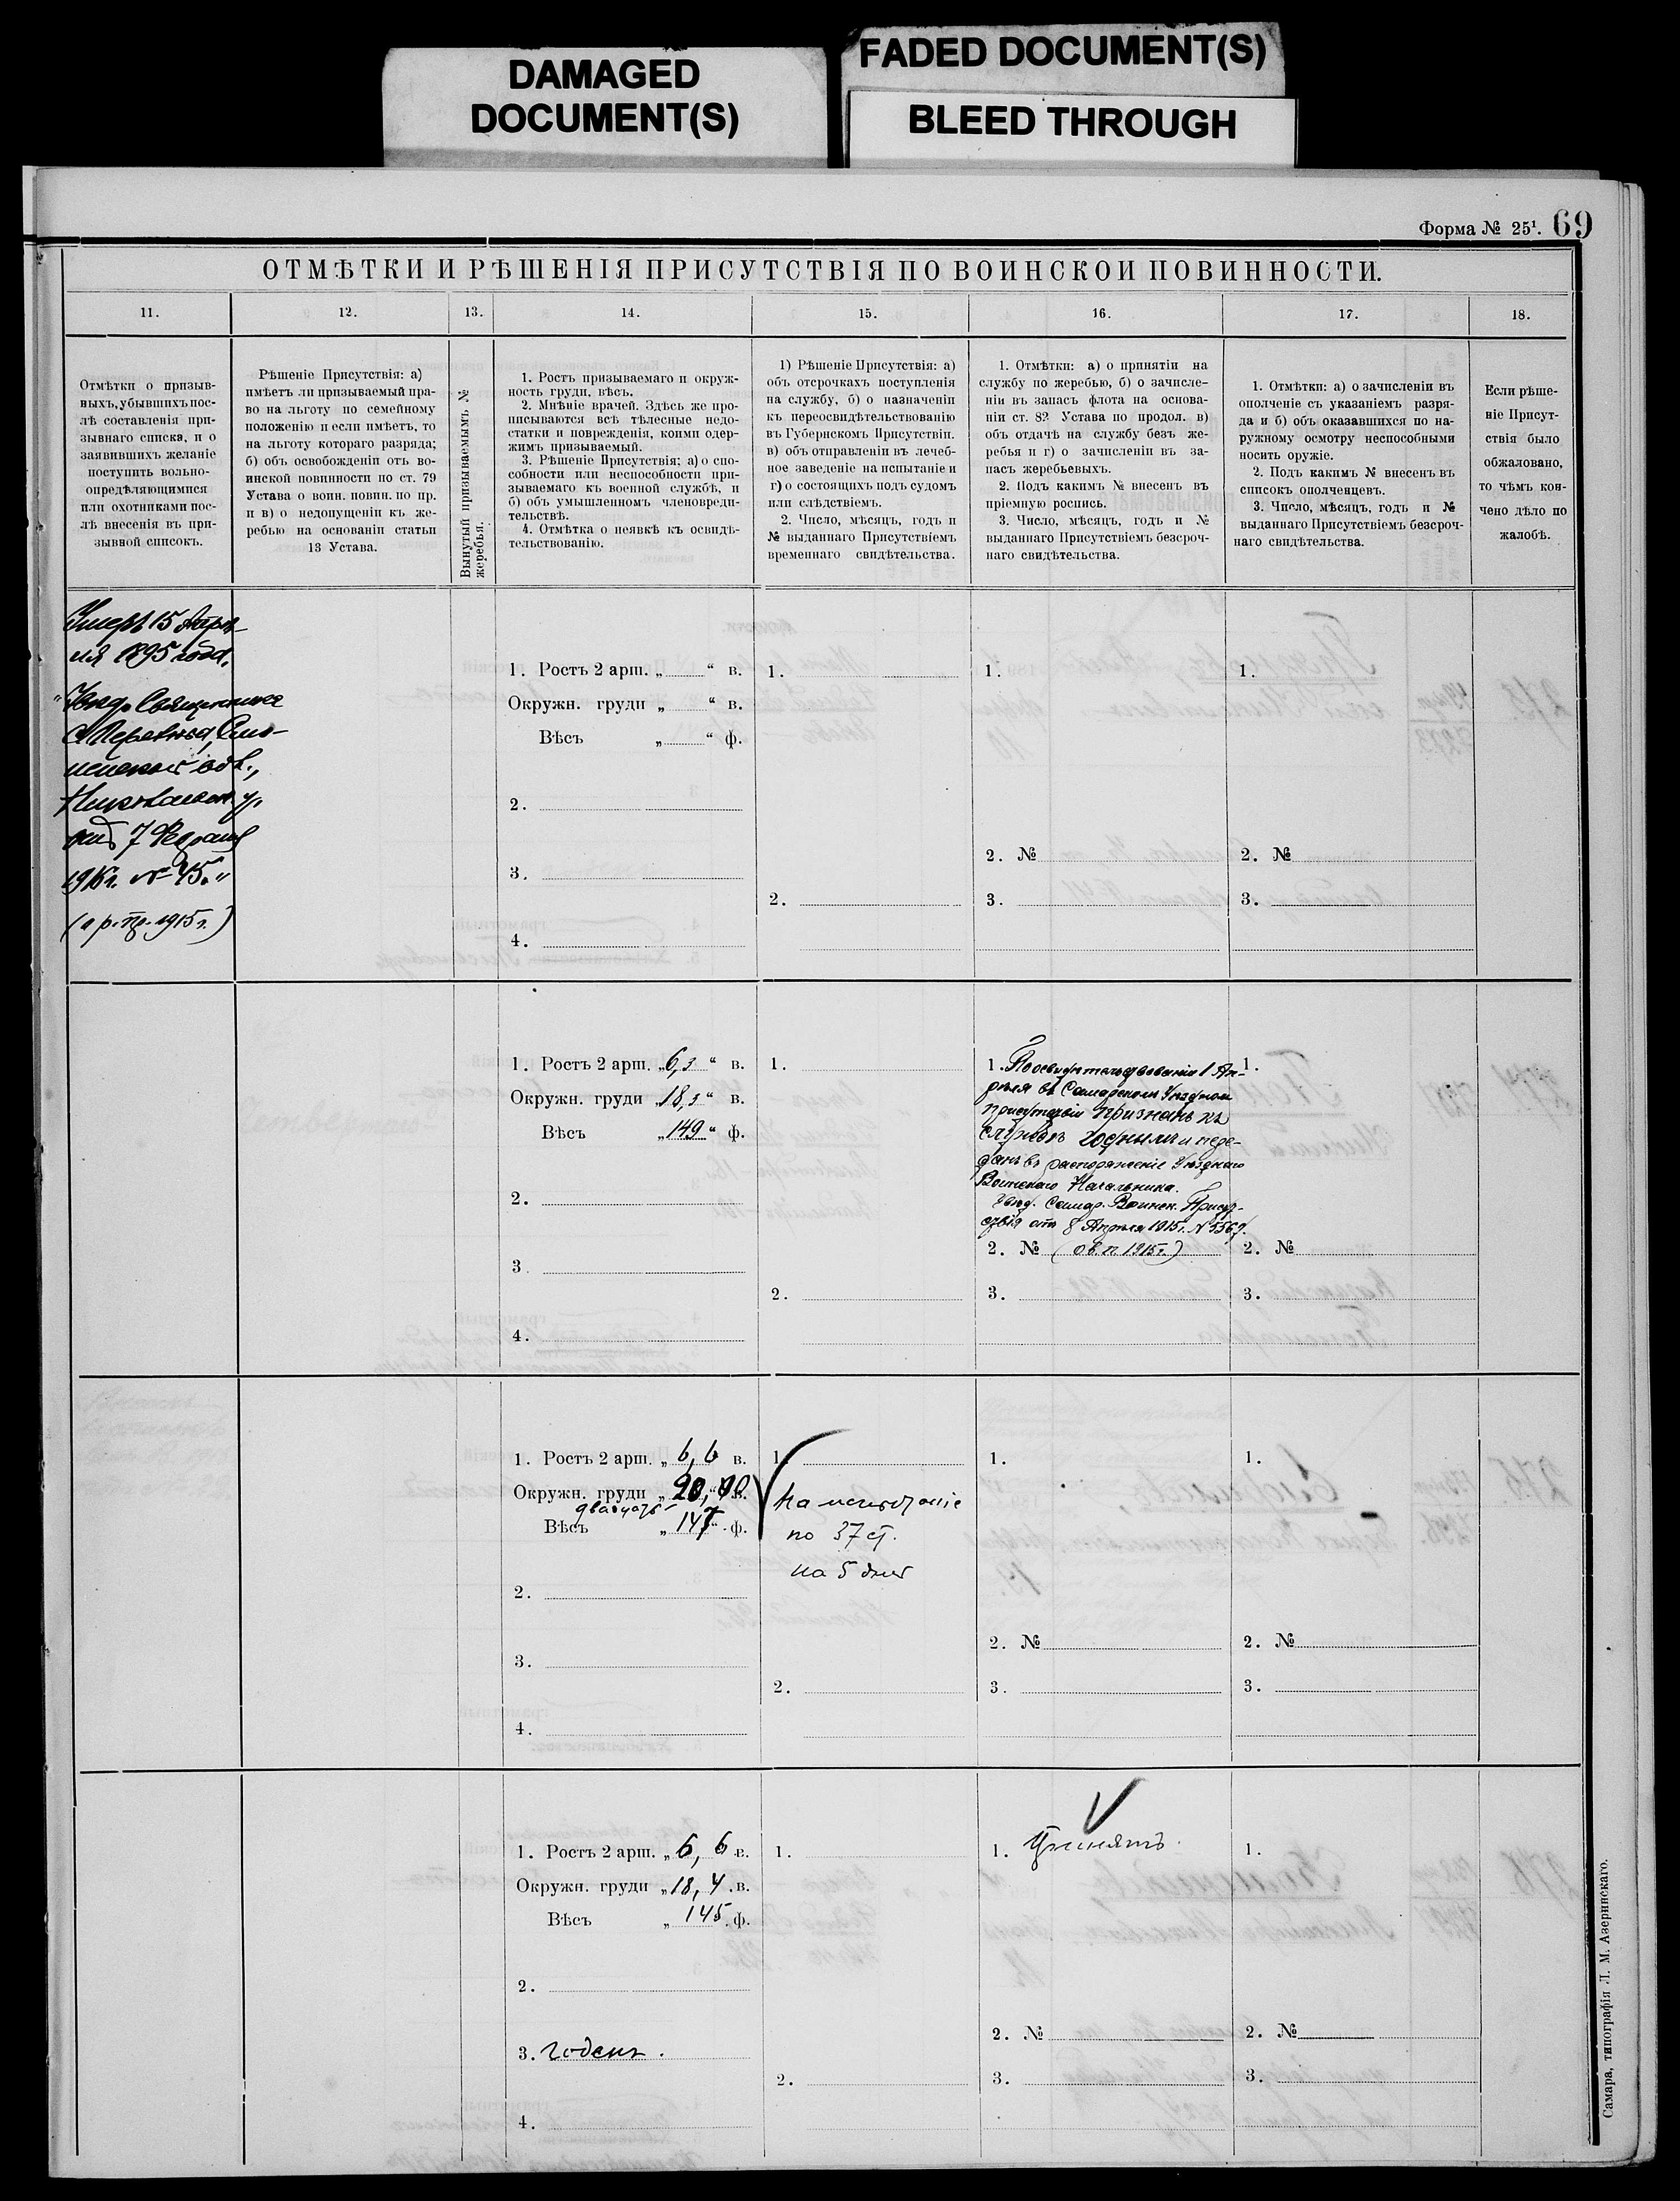 DAMAGED
DOCUMENT(S)
FADED DOCUMENT(S)
BLEED THROUGH
Форма № 25¹. 69
ОТМѢТКИ И РѢШЕНІЯ ПРИСУТСТВІЯ ПО ВОИНСКОЙ ПОВИННОСТИ.
11. 12. 13. 14. 15. 16. 17. 18.
Отмѣтки о призыв-
ныхъ, убывшихъ пос-
лѣ составленія при-
зывнаго списка, и о
заявившихъ желаніе
поступить вольно-
опредѣляющимися
или охотниками пос-
лѣ внесенія въ при-
зывной списокъ.
Рѣшеніе Присутствія: а)
имѣетъ ли призываемый пра-
во на льготу по семейному
положенію и если имѣетъ, то
на льготу котораго разряда;
б) объ освобожденіи отъ во-
инской повинности по ст. 79
Устава о воин. повин. по пр.
и в) о недопущеніи къ же-
ребью на основаніи статьи
13 Устава.
Вынутый призываемымъ №
жеребья.
1. Ростъ призываемаго и окруж-
ность груди, вѣсъ.
2. Мнѣніе врачей. Здѣсь же про-
писываются всѣ тѣлесные недо-
статки и поврежденія, коими одер-
жимъ призываемый.
3. Рѣшеніе Присутствія; а) о спо-
собности или неспособности при-
зываемаго къ военной службѣ, и
б) объ умышленномъ членовреди-
тельствѣ.
4. Отмѣтка о неявкѣ къ освидѣ-
тельствованію.
1) Рѣшеніе Присутствія: а)
объ отсрочкахъ поступленія
на службу, б) о назначеніи
къ переосвидѣтельствованію
въ Губернскомъ Присутствіи.
в) объ отправленіи въ лечеб-
ное заведеніе на испытаніе и
г) о состоящихъ подъ судомъ
или слѣдствіемъ.
2. Число, мѣсяцъ, годъ и
№ выданнаго Присутствіемъ
временнаго свидѣтельства.
1. Отмѣтки: а) о принятіи на
службу по жеребью, б) о зачисле-
ніи въ запасъ флота на основа-
ніи ст. 82 Устава по продол. в)
объ отдачѣ на службу безъ же-
ребья и г) о зачисленіи въ за-
пасъ жеребьевыхъ.
2. Подъ какимъ № внесенъ въ
пріемную роспись.
3. Число, мѣсяцъ, годъ и №
выданнаго Присутствіемъ безсроч-
наго свидѣтельства.
1. Отмѣтки: а) о зачисленіи въ
ополченіе съ указаніемъ разря-
да и б) объ оказавшихся по на-
ружному осмотру неспособными
носить оружіе.
2. Подъ какимъ № внесенъ въ
списокъ ополченцевъ.
3. Число, мѣсяцъ, годъ и №
выданнаго Присутствіемъ безсроч-
наго свидѣтельства.
Если рѣше-
ніе Присут-
ствія было
обжаловано,
то чѣмъ кон-
чено дѣло по
жалобѣ.
Умеръ 15 Апрѣ-
ля 1895 года.
Увѣд. Священника
ской вол.,
у.
отъ 7 Февраля
1915г. № 45."
1. Ростъ 2 арш. „ “ в.
Окружн. груди „ “ в.
Вѣсъ „ “ ф.
2.
3.
4.
1.
2.
1.
2. №
3.
1.
2. №
3.
1. Ростъ 2 арш. „6,3 “ в.
Окружн. груди „18,3 “ в.
Вѣсъ „149 “ ф.
2.
3
4.
1.
2.
1. По освидѣтельствованіи 1 Ап-
рѣля въ Самарскомъ Уѣздномъ
присутствіи признанъ къ
службѣ годнымъ и пере-
данъ въ распоряженіе Уѣзднаго
Воинскаго Начальника.
Увѣд. Самар. Воинск. Присут-
ствія отъ 8 Апрѣля 1915г. № 5567.
2. № (о.в.п. 1915г.)
3.
1.
2. №
3.
1. Ростъ 2 арш. „ 6,6 в.
Окружн. груди „ 20, в.
двадцать
Вѣсъ „ 147 ф.
2.
3.
4.
1.
На испытаніе
по 37 ст.
на 5 дней
2.
1.
2. №
3.
1.
2. №
3.
1. Ростъ 2 арш. „6, 6 в.
Окружн. груди „18, 4 в.
Вѣсъ „ 145 ф.
2.
3. годенъ.
4.
1.
2.
1. Принятъ.
2. №
3.
1.
2. №
3.
Самара, типографія Л. М. Азеринскаго.